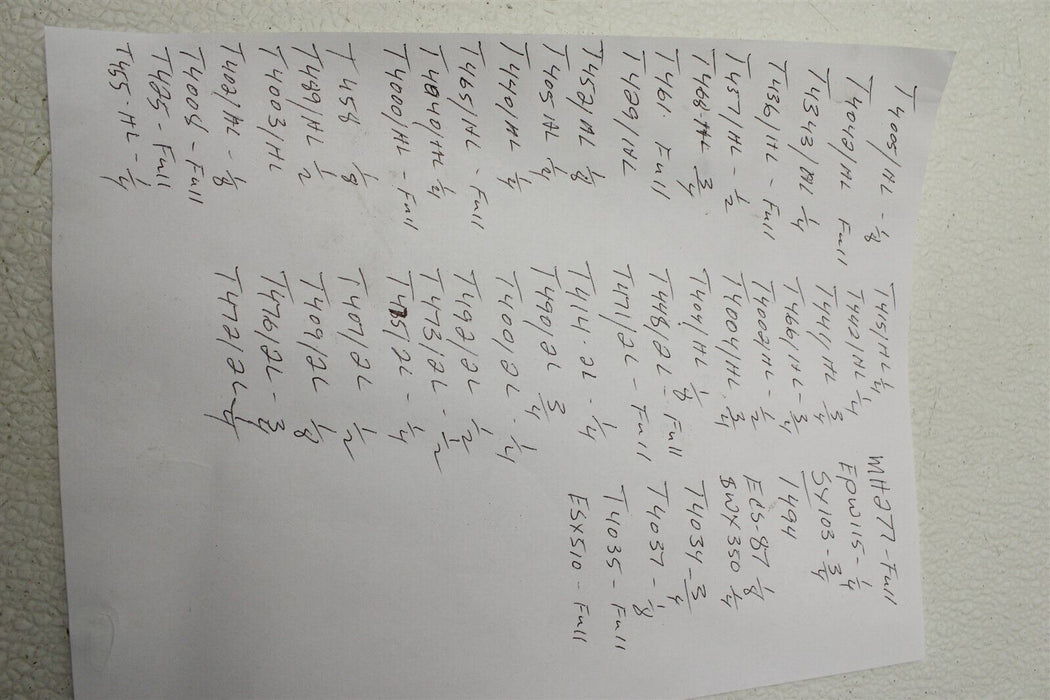 T4005/HL - 1/8
T4042/HL Full
T4343/HL 1/4
T436/HL - Full
T437/HL - 1/2
T468·HL 3/4
T461· Full
T429/HL
T452/HL 1/8
T405·HL 1/4
T440/HL 1/4
T465/HL - Full
T4040/HL 1/4
T4000/HL - Full
T456 1/8
T489/HL 1/2
T4003/HL
T402/HL - 1/8
T4006 - Full
T425 - Full
T455·HL - 1/4
T451/HL 1/4
T442/HL 1/4
T444/HL 3/4
T466/HL - 3/4
T4002/HL - 1/2
T4004/HL· 3/4
T401/HL 1/8
T448/2L· Full
T471/2L - Full
T414·2L - 1/4
T490/2L 3/4
T400/2L· 1/4
T492/2L 1/2
T473/2L - 1/2
/2L - 1/4
T407/2L 1/2
T409/2L 1/8
T476/2L - 3/8
T472/2L - 1/4
MH277 - Full
EPW115 - 1/4
SX103 - 3/4
T494
ECS-87 1/8
BWX350 1/4
T4034 - 3/4
T4037 - 1/8
T4035 - Full
ESX510 - Full